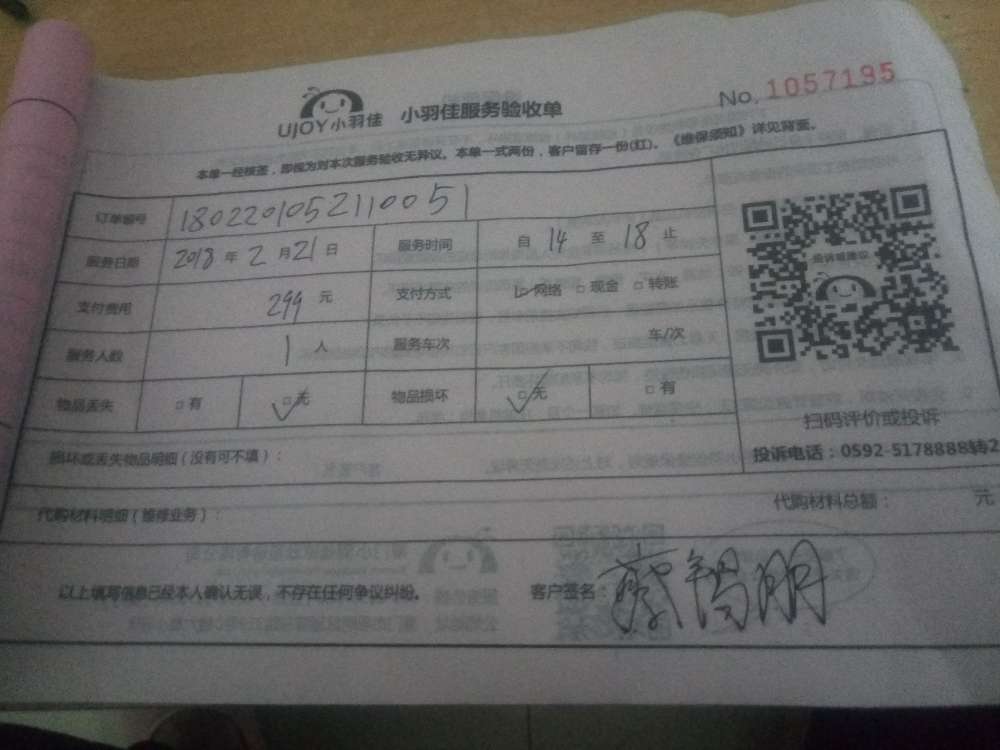 UJOY小羽佳 小羽佳服务验收单 No. 1057195
本单一经核签，即视为对本次服务验收无异议。本单一式两份，客户留存一份(红)。《维保须知》详见背面。
订单编号 1802201052110051
服务日期 2018 年 2 月 21 日 服务时间 自 14 至 18 止
支付费用 299 元 支付方式 ☑网络 □现金 □转账
服务人数 1 人 服务车次 车/次
物品丢失 □有 ☑无 物品损坏 ☑无 □有
投诉或建议
扫码评价或投诉
投诉电话：0592-5178888转2
损坏或丢失物品明细（没有可不填）：
代购材料明细（维修业务）： 代购材料总额： 元
以上填写信息已经本人确认无误，不存在任何争议纠纷。 客户签名：蔡锡朋